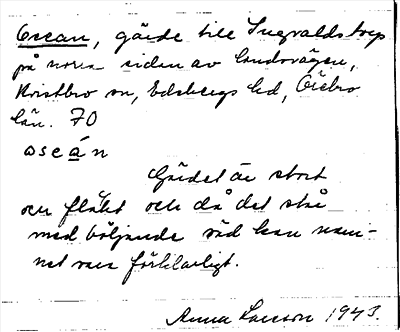 Ocean, gärde till Ingvaldstorp
på norra sidan av landsvägen,
Kvistbro sn, Edsbergs hd, Örebro
län. 70
oseán
Gärdet är stort
och flått och då det står
med böljande säd kan nam-
net vara förklarligt.
Anna Larsson 1943.